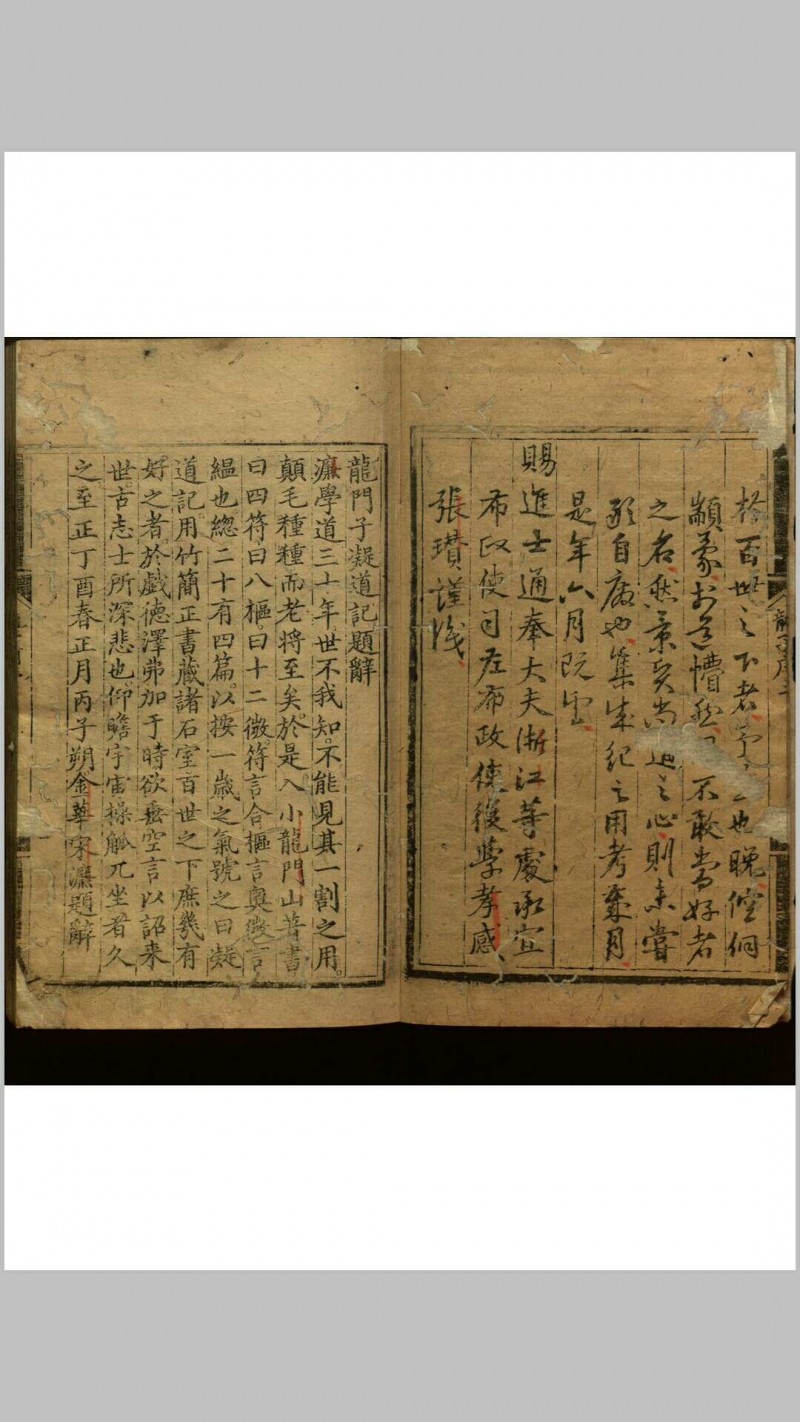 於百世之下者乎 也睌倥侗
顓蒙於道懵 不敢當好者
之名然景 尚 之心則未嘗
敢自廢也集成紀之用考歲月
是年六月既望
賜進士通奉大夫浙江等處承宣
布政使司左布政使後學孝感
張瓚謹識
龍門子凝道記題辭
濂學道三十年世不我知不能見其一割之用
顛毛種種而老將至矣於是入小龍門山著書
曰四符曰八樞曰十二微符言合樞言奧微言
緼也緫二十有四篇以按一歲之氣號之曰凝
道記用竹簡正書藏諸石室百世之下庶幾有
好之者於戲德澤弗加于時欲垂空言以詔来
世古志士所深悲也仰瞻宇宙操觚兀坐者久
之至正丁酉春正月丙子朔金華宋濂題辭